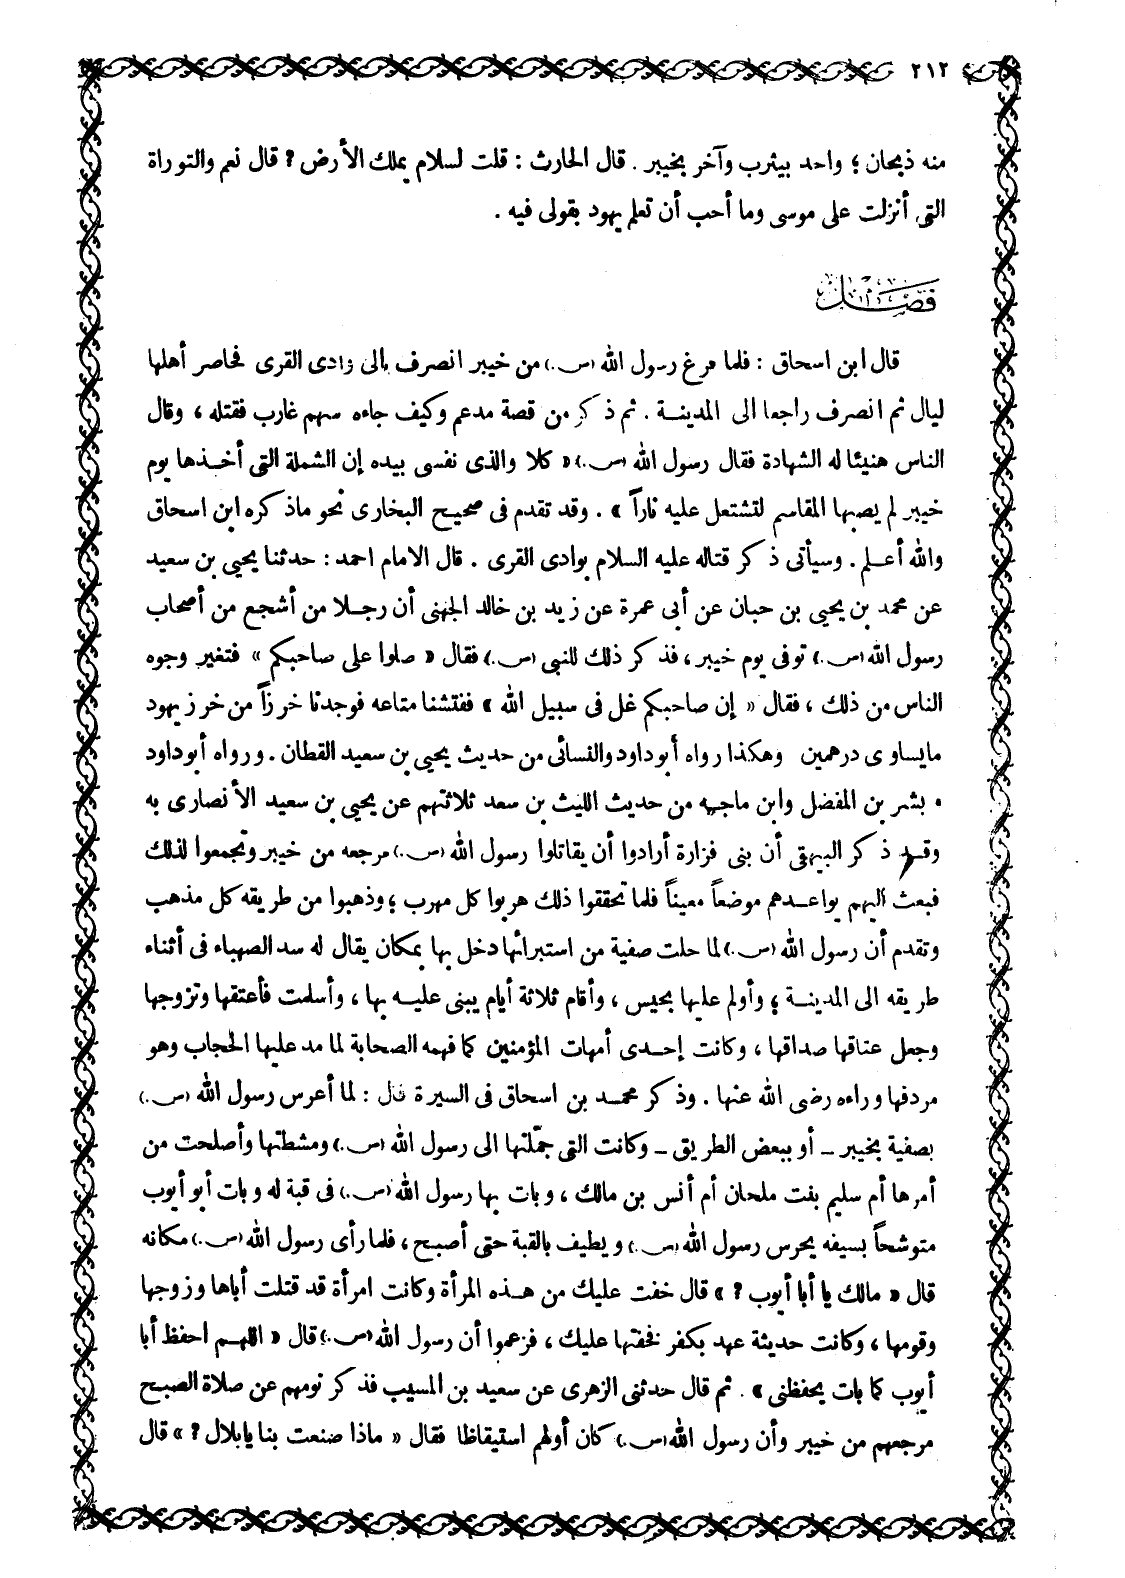 ٢١٢
منه ذبحان ؛ واحد بيثرب وآخر بخيبر . قال الحارث : قلت لسلام يملك الأرض ? قال نعم والتوراة
التى أنزلت على موسى وما أحب أن تعلم يهود بقولى فيه .
فصل
قال ابن اسحاق : فلما فرغ رسول الله (س.) من خيبر انصرف إلى وادى القرى فحاصر أهلها
ليال ثم انصرف راجعا الى المدينة . ثم ذكر من قصة مدعم وكيف جاءه سهم غارب فقتله ، وقال
الناس هنيئا له الشهادة فقال رسول الله (س.) « كلا والذى نفسى بيده إن الشملة التى أخذها يوم
خيبر لم يصبها المقاسم لتشتعل عليه ناراً » . وقد تقدم فى صحيح البخارى نحو ماذكره ابن اسحاق
والله أعلم . وسيأتى ذكر قتاله عليه السلام بوادى القرى . قال الامام احمد : حدثنا يحيى بن سعيد
عن محمد بن يحيى بن حبان عن أبى عمرة عن زيد بن خالد الجهنى أن رجلا من أشجع من أصحاب
رسول الله (س.) توفى يوم خيبر ، فذكر ذلك للنبى (س.) فقال « صلوا على صاحبكم » فتغير وجوه
الناس من ذلك ، فقال « إن صاحبكم غل فى سبيل الله » ففتشنا متاعه فوجدنا خرزاً من خرز يهود
مايساوى درهمين وهكذا رواه أبوداود والنسائى من حديث يحيى بن سعيد القطان . ورواه أبوداود
• بشر بن المفضل وابن ماجه من حديث الليث بن سعد ثلاثتهم عن يحيى بن سعيد الأنصارى به
وقد ذكر البيهقى أن بنى فزارة أرادوا أن يقاتلوا رسول الله (س.) مرجعه من خيبر وتجمعوا لذلك
فبعث اليهم يواعدهم موضعاً معيناً فلما تحققوا ذلك هربوا كل مهرب ؛ وذهبوا من طريقه كل مذهب
وتقدم أن رسول الله (س.) لما حلت صفية من استبرائها دخل بها بمكان يقال له سد الصهباء فى أثناء
طريقه الى المدينة ؛ وأولم عليها بحيس ، وأقام ثلاثة أيام يبنى عليه بها ، وأسلمت فأعتقها وتزوجها
وجعل عتاقها صداقها ، وكانت إحدى أمهات المؤمنين كما فهمه الصحابة لما مد عليها الحجاب وهو
مردفها وراءه رضى الله عنها . وذكر محمد بن اسحاق فى السيرة قال : لما أعرس رسول الله (س.)
بصفية بخيبر ــ أو ببعض الطريق ــ وكانت التى جمّلتها الى رسول الله (س.) ومشطتها وأصلحت من
أمرها أم سليم بنت ملحان أم أنس بن مالك ، وبات بها رسول الله (س.) فى قبة له وبات أبو أيوب
متوشحاً بسيفه يحرس رسول الله (س.) ويطيف بالقبة حتى أصبح ، فلما رأى رسول الله (س.) مكانه
قال « مالك يا أبا أيوب ? » قال خفت عليك من هذه المرأة وكانت امرأة قد قتلت أباها وزوجها
وقومها ، وكانت حديثة عهد بكفر فخفتها عليك ، فزعموا أن رسول الله (س.) قال « اللهم احفظ أبا
أيوب كما بات يحفظنى » . ثم قال حدثنى الزهرى عن سعيد بن المسيب فذكر نومهم عن صلاة الصبح
مرجعهم من خيبر وأن رسول الله (س.) كان أولهم استيقاظا فقال « ماذا صنعت بنا يابلال ? » قال